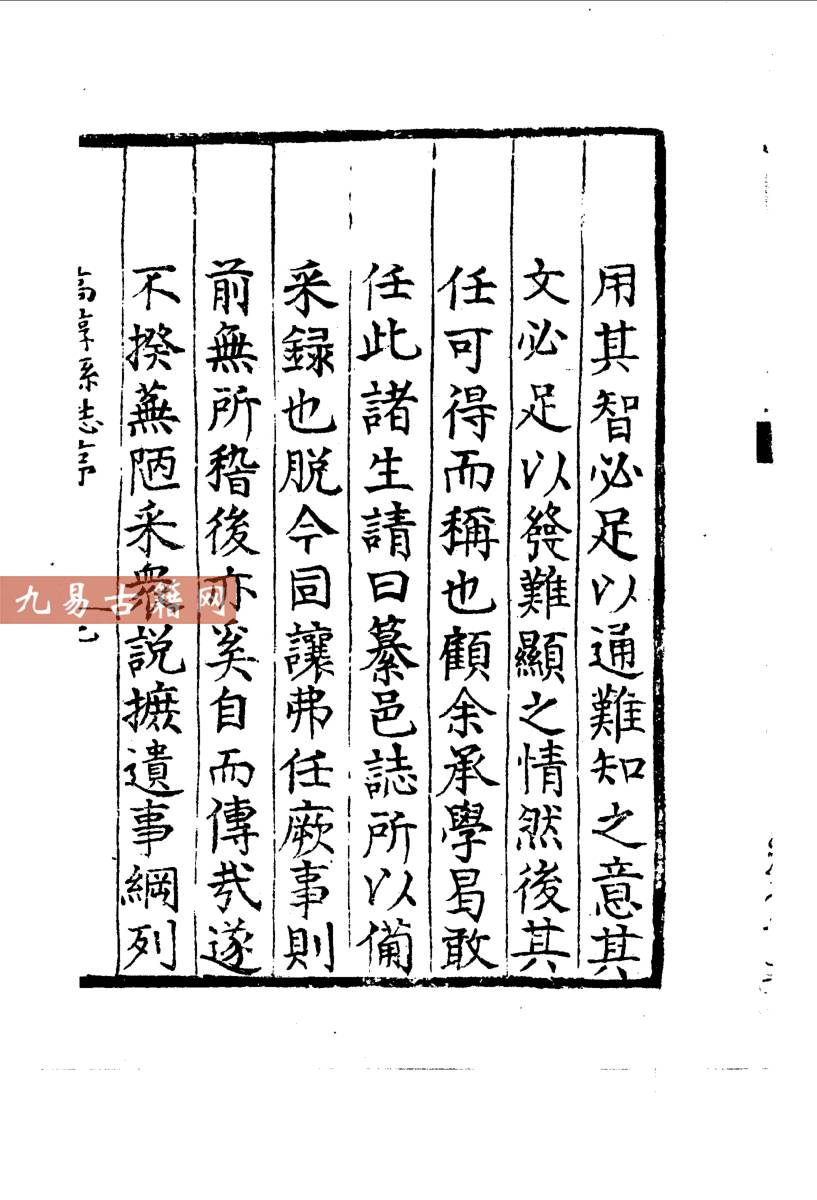 用其智必足以通難知之意其
文必足以發難顯之情然後其
任可得而稱也顧余承學曷敢
任此諸生請曰纂邑誌所以備
采録也脱今囘讓弗任厥事則
前無所稽後亦奚自而傳哉遂
不揆蕪陋采衆説摭遺事綱列
高淳縣志序
九易古籍网